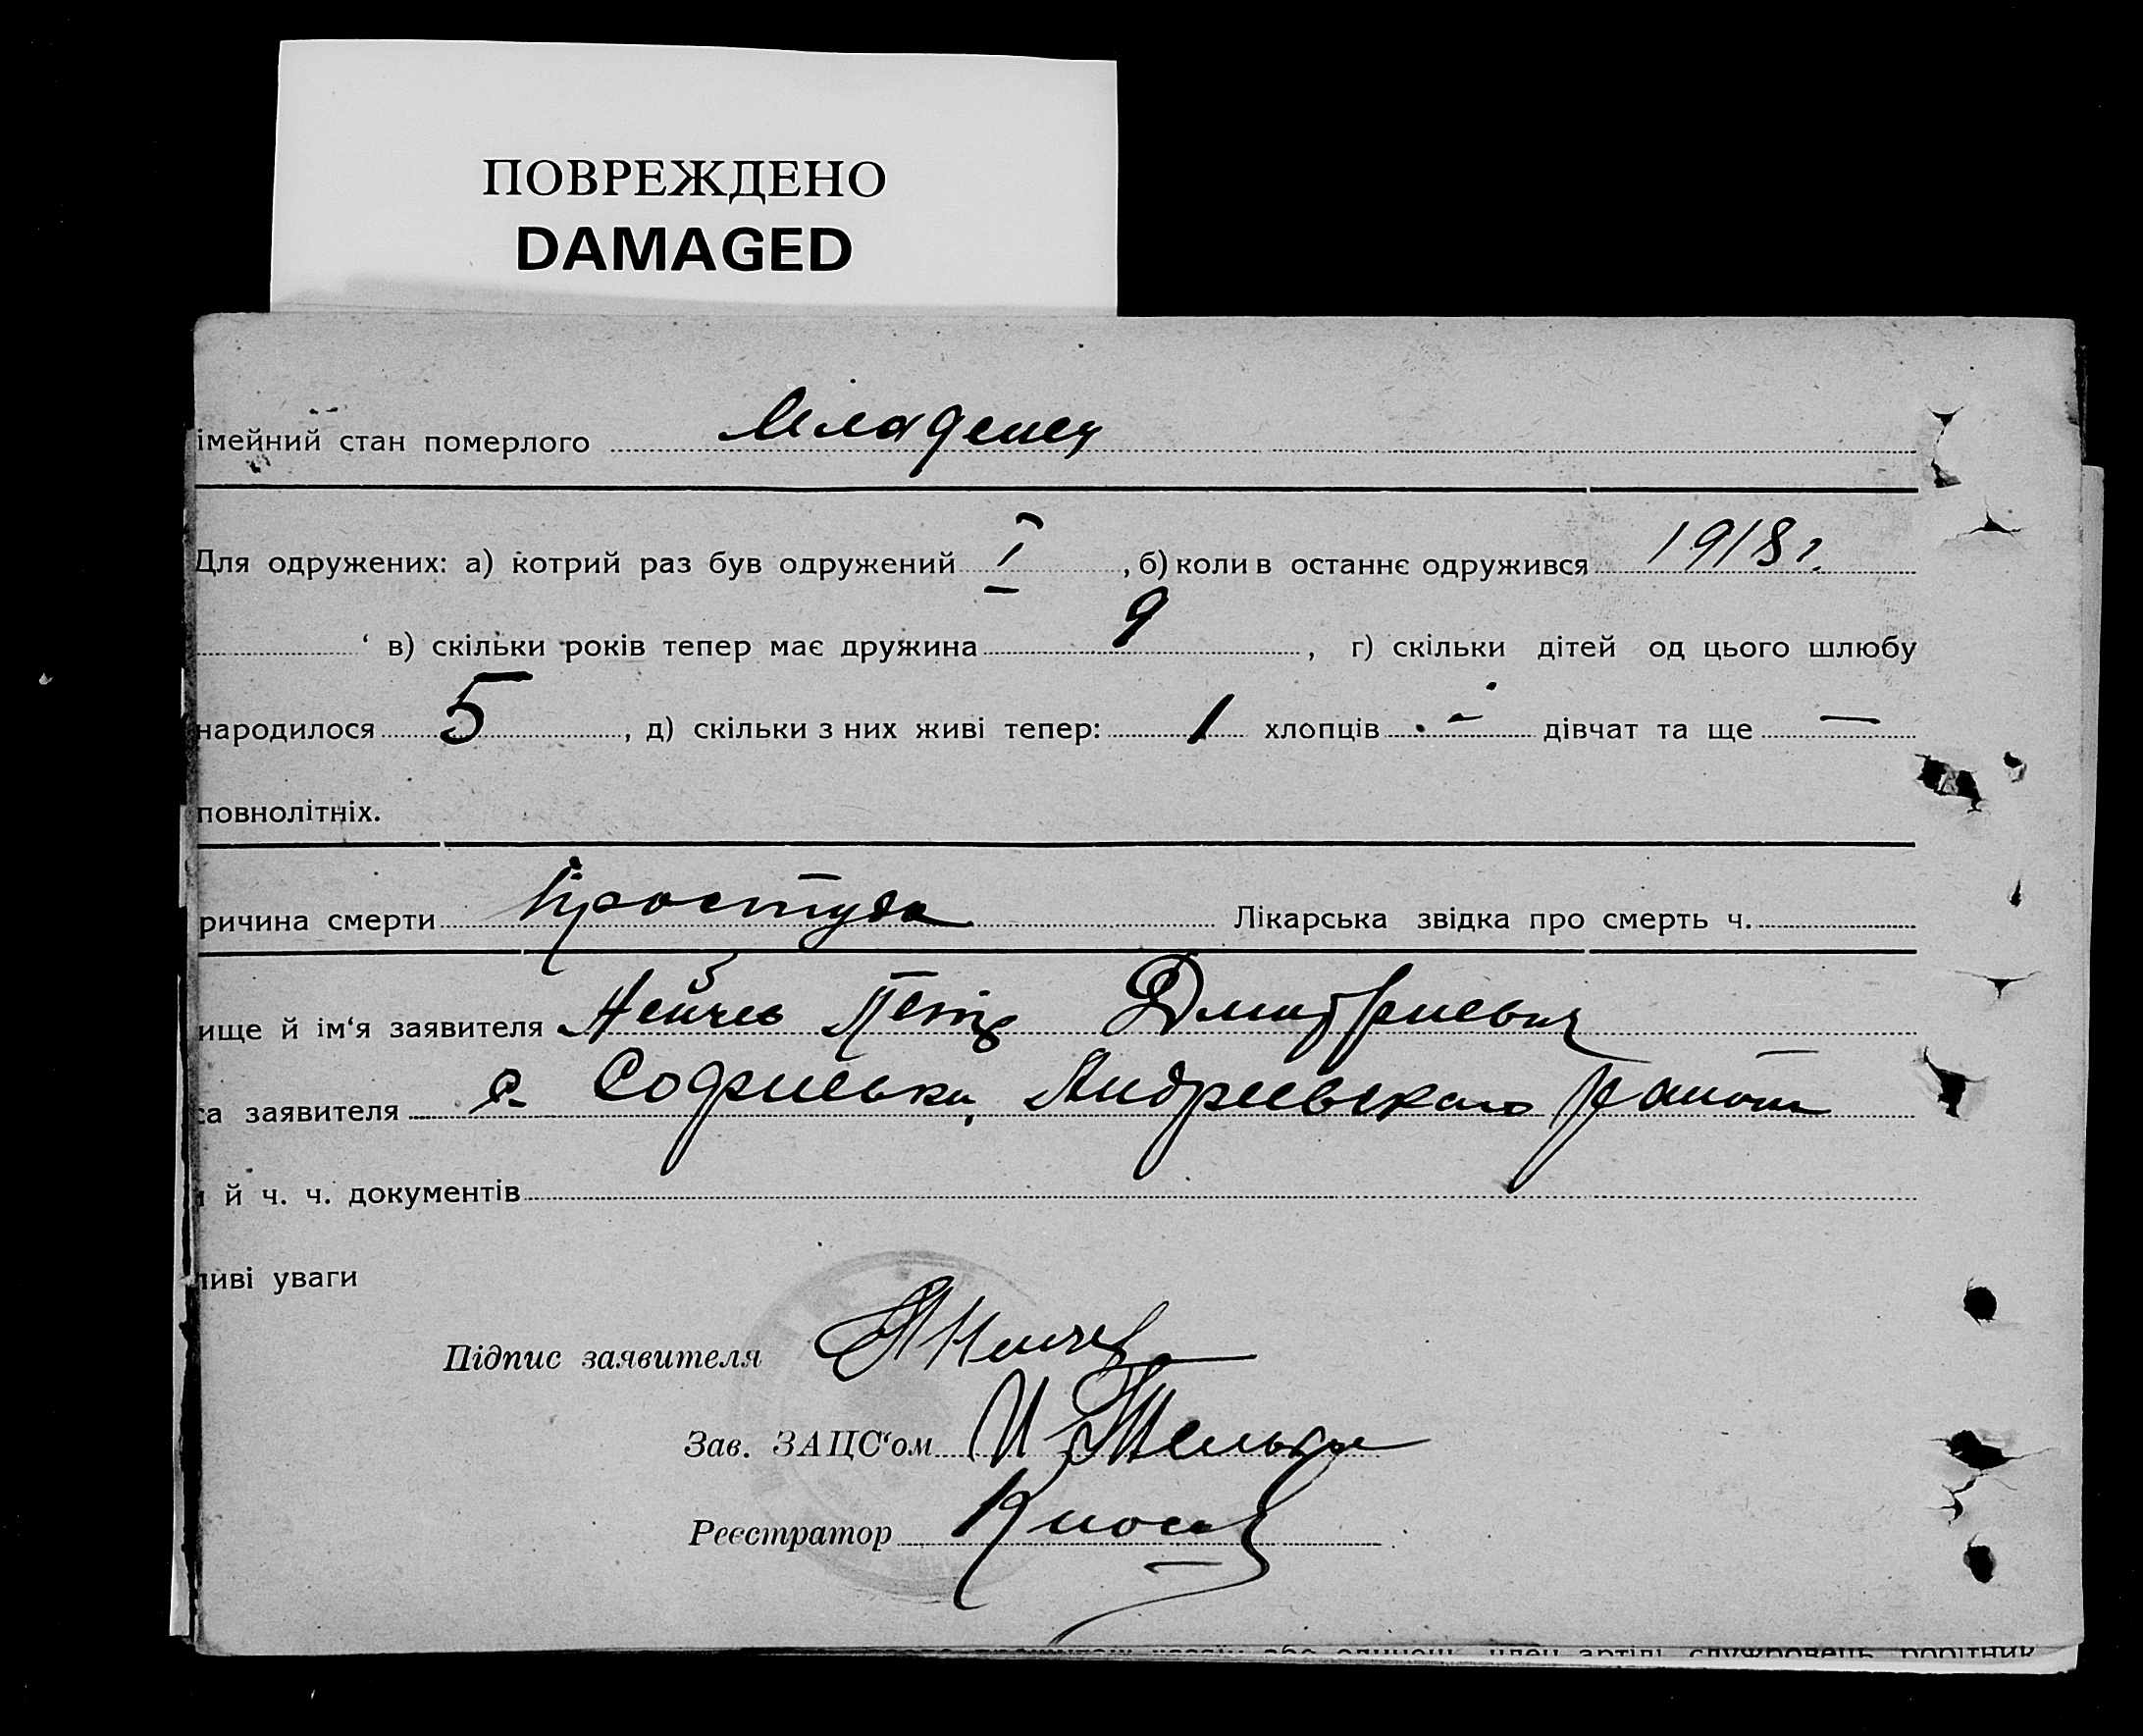 ПОВРЕЖДЕНО
DAMAGED
імейний стан померлого Младенец
Для одружених: а) котрий раз був одружений I , б) коли в останнє одружився 1918 г.
в) скільки років тепер має дружина 9 , г) скільки дітей од цього шлюбу
народилося 5 , д) скільки з них живі тепер: 1 хлопців - дівчат та ще —
повнолітніх.
ричина смерти Простуда Лікарська звідка про смерть ч.
ище й ім‘я заявителя Нейчев Петр Дмитриевич
са заявителя с. Софиевка, Андреевского района
й ч. ч. документів
ливі уваги
Підпис заявителя Нейчев
Зав. ЗАЦС‘ом
Реєстратор
або одинець, член артілі, службовець, робітник